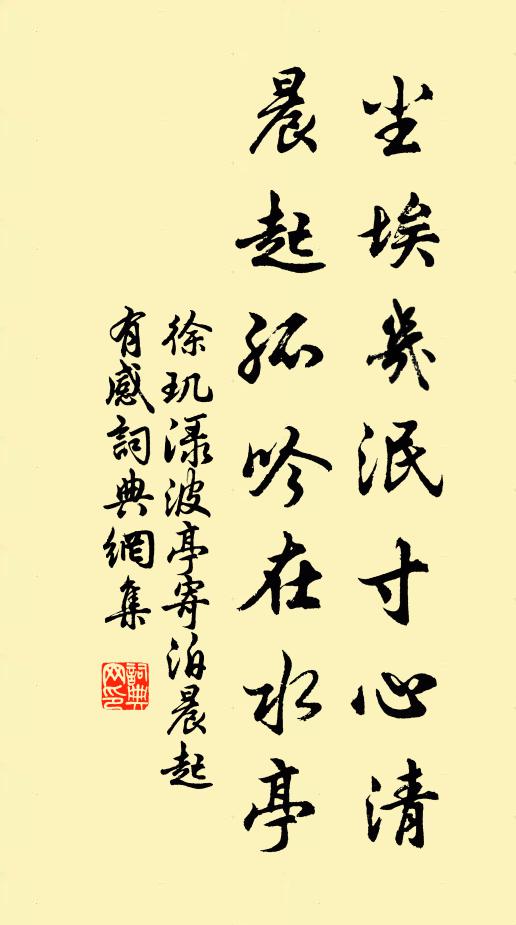 尘埃几泯寸心清
晨起孤吟在水亭
徐玑渌波亭寄泊晨起
有感词典網集
詞典网印